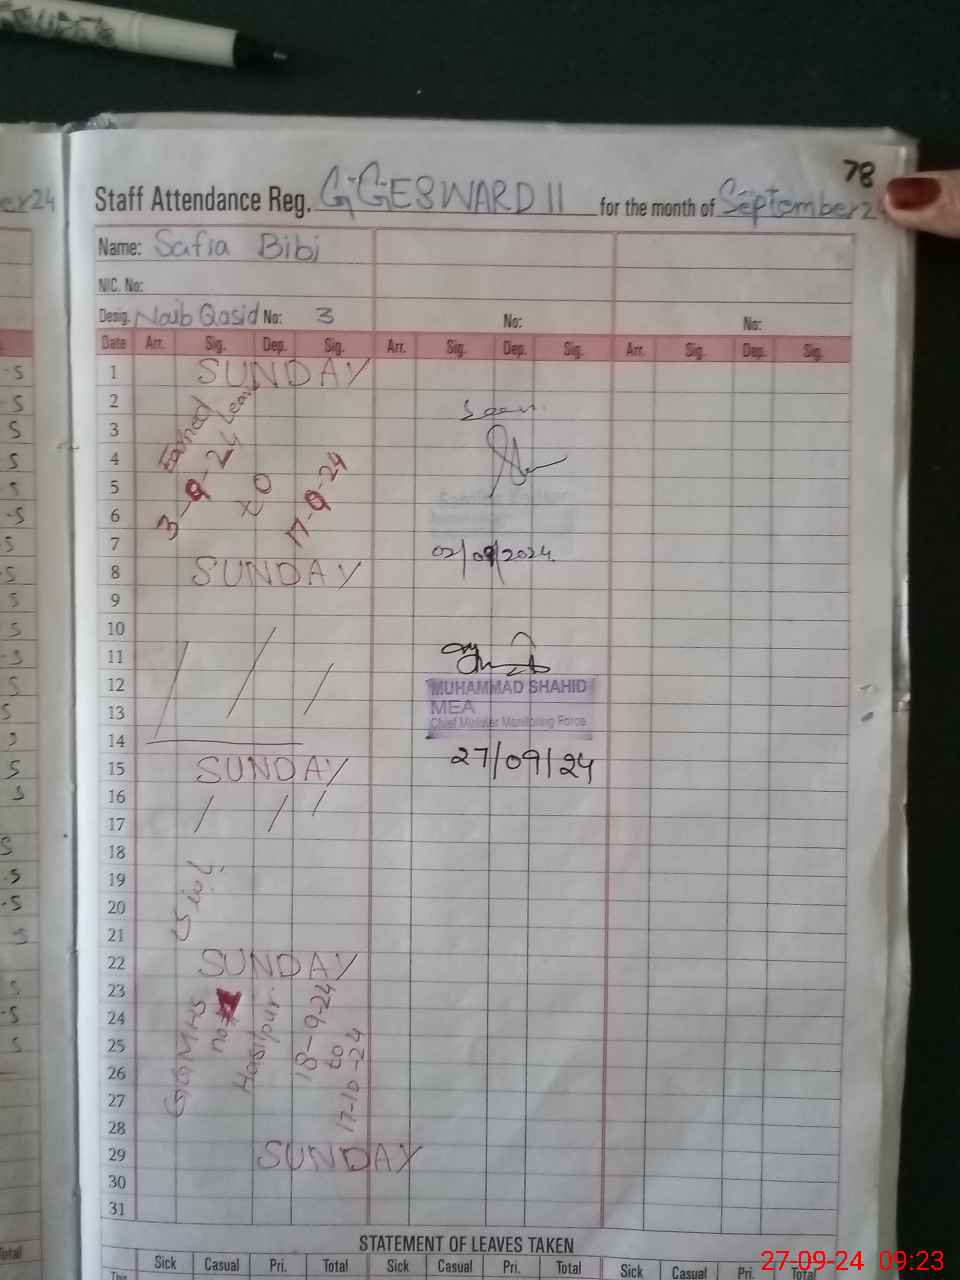 78
Staff Attendance Reg. GGES WARD 11 for the month of September 24
Name: Safia Bibi
NIC. No:
Desig. Naib Qasid No: 3 No: No:
Date Arr. Sig. Dep. Sig. Arr. Sig. Dep. Sig. Arr. Sig. Dep. Sig.
1 SUNDAY
2
3
4
5
6
7
8 SUNDAY
9
10
11
12
13
14
15 SUNDAY
16
17
18
19
20
21
22 SUNDAY
23
24
25
26
27
28
29 SUNDAY
30
31
Earned Leave
3-9-24
to
17-9-24
Seen
02/09/2024
MUHAMMAD SHAHID
MEA
Chief Minister Monitoring Force
27/09/24
GGMHS
no
Hasilpur.
18-9-24
to
17-10-24
STATEMENT OF LEAVES TAKEN
Sick Casual Pri. Total Sick Casual Pri. Total Sick Casual Pri. Total
This
27-09-24 09:23